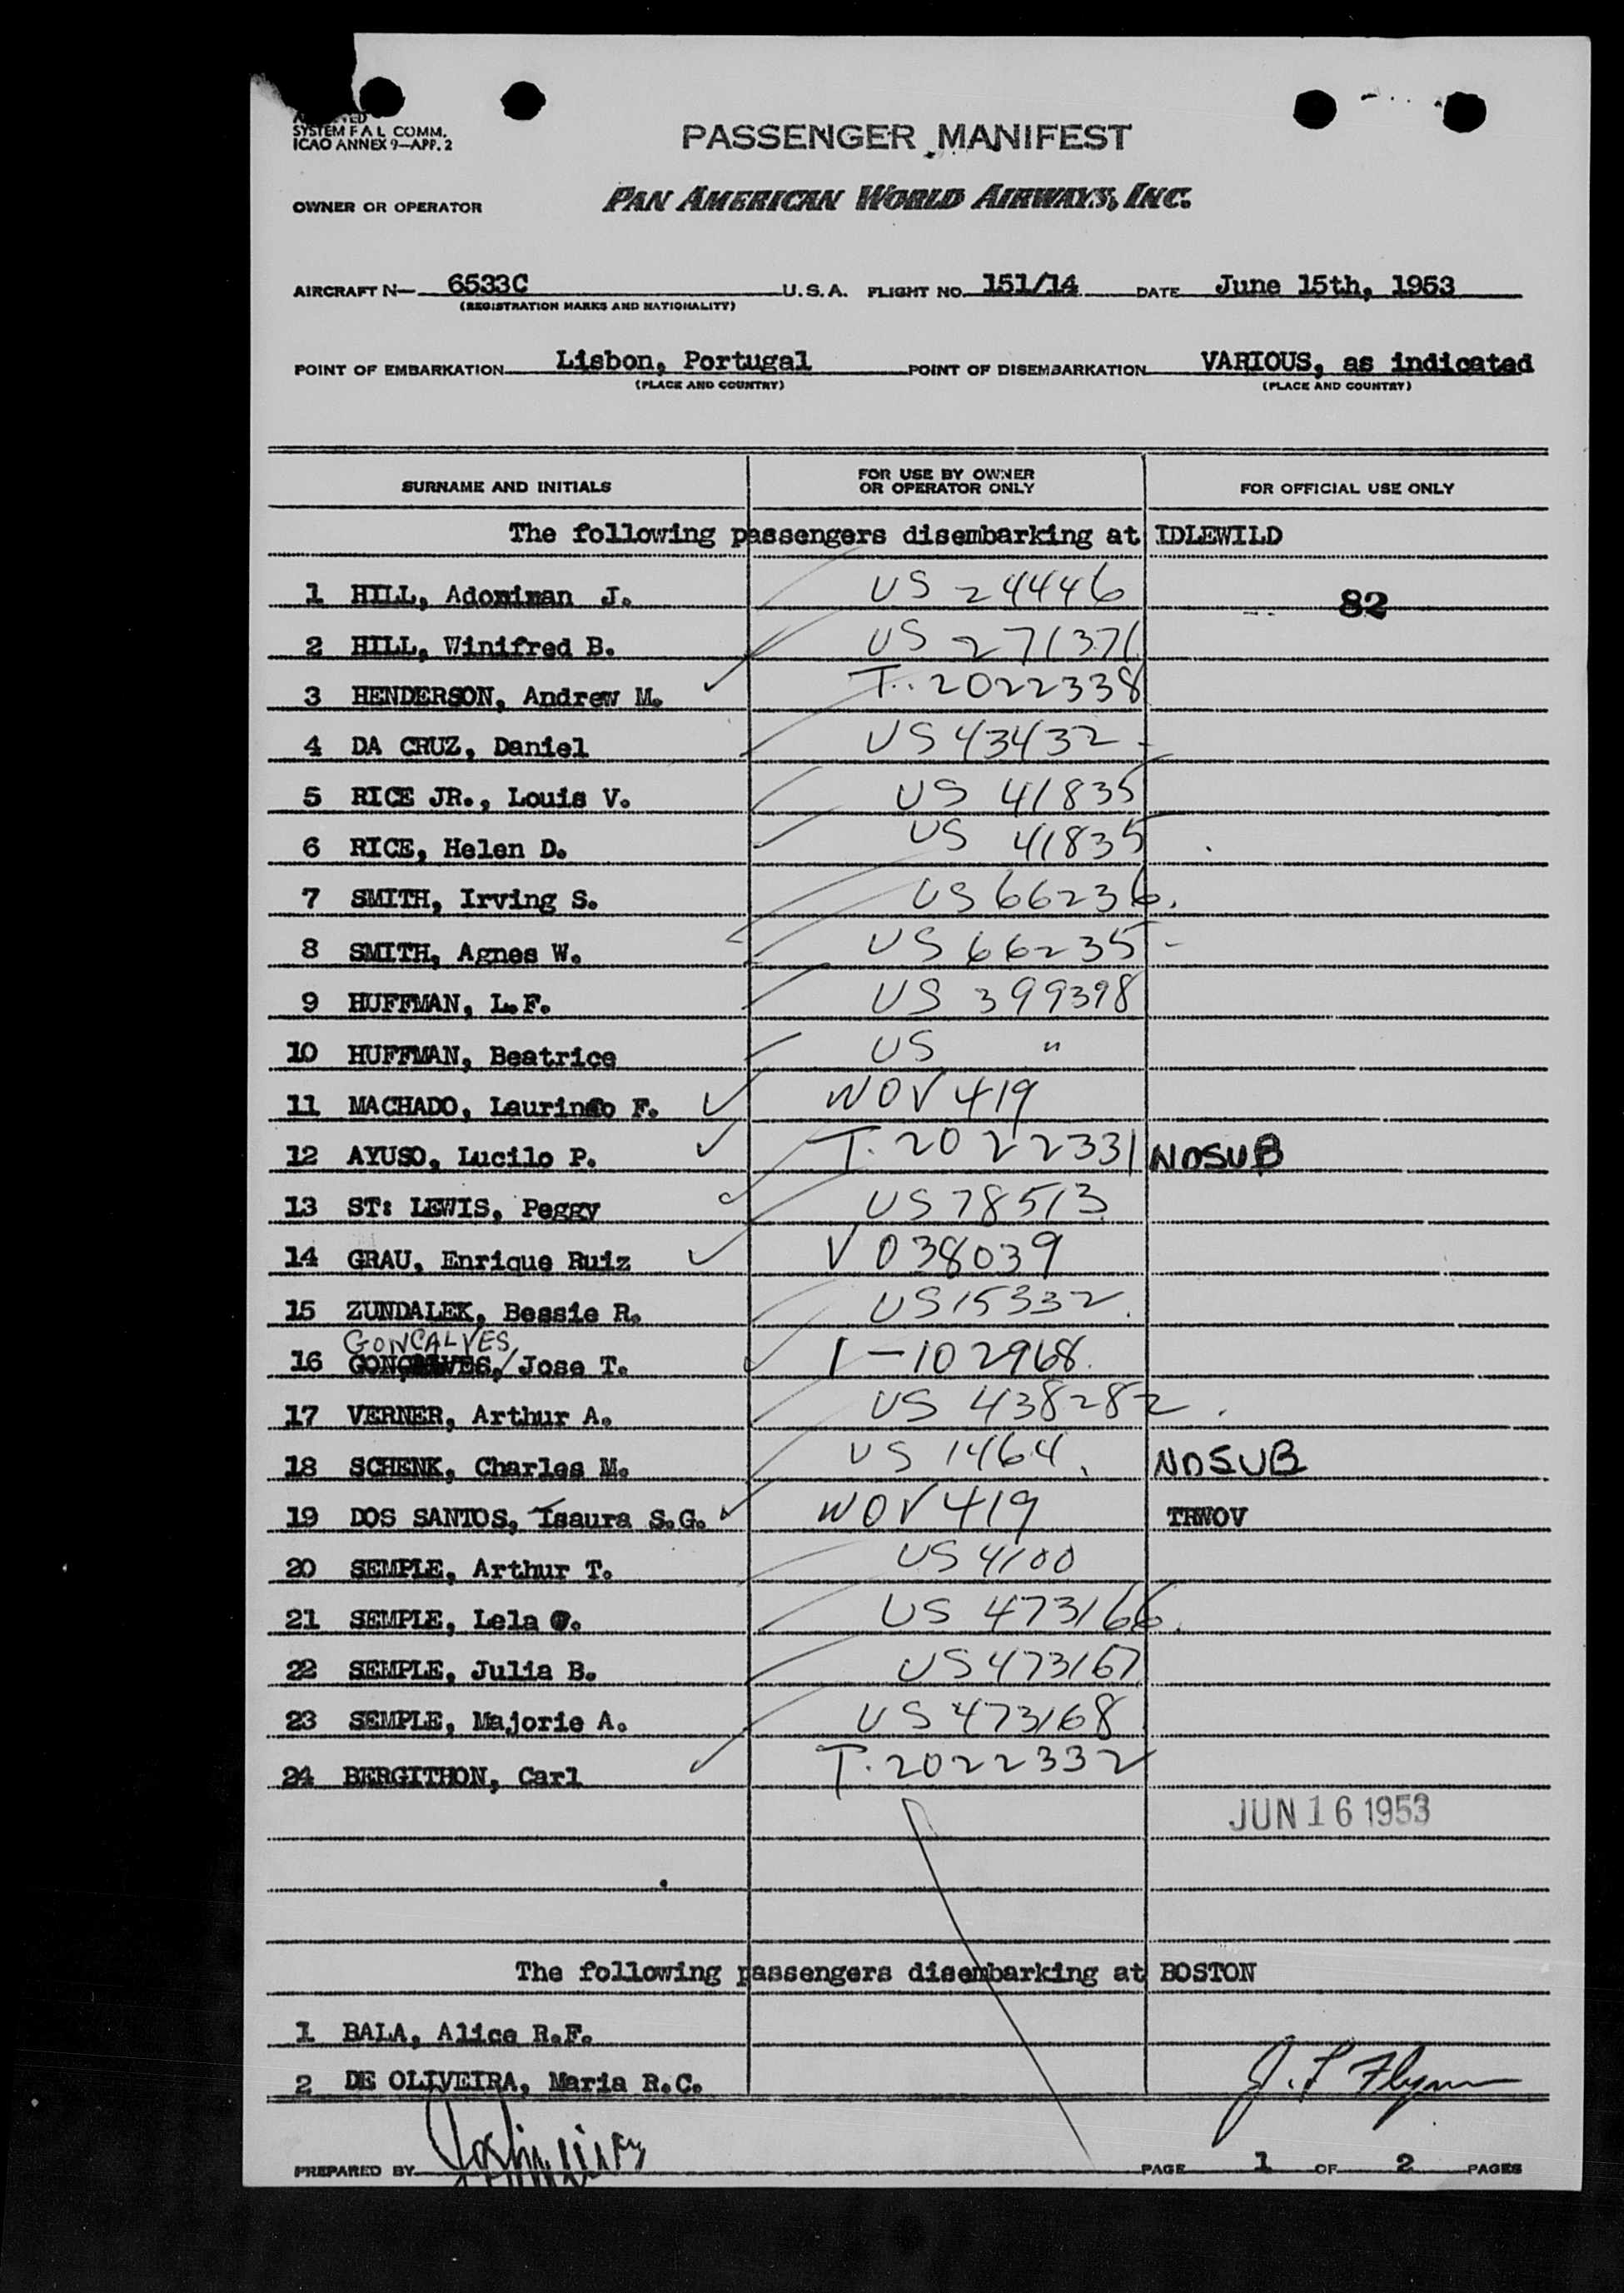 SYSTEM F A L COMM.
ICAO ANNEX 9—APP. 2
PASSENGER MANIFEST
OWNER OR OPERATOR PAN AMERICAN WORLD AIRWAYS, INC.
AIRCRAFT N— 6533C U.S.A. FLIGHT NO. 151/14 DATE June 15th, 1953
(REGISTRATION MARKS AND NATIONALITY)
POINT OF EMBARKATION Lisbon, Portugal POINT OF DISEMBARKATION VARIOUS, as indicated
(PLACE AND COUNTRY) (PLACE AND COUNTRY)
SURNAME AND INITIALS FOR USE BY OWNER OR OPERATOR ONLY FOR OFFICIAL USE ONLY
The following passengers disembarking at IDLEWILD
1 HILL, Adoniman J. US 24446 82
2 HILL, Winifred B. US 271371
3 HENDERSON, Andrew M. T.. 2022338
4 DA CRUZ, Daniel US 43432 -
5 RICE JR., Louis V. US 41835
6 RICE, Helen D. US 41835
7 SMITH, Irving S. US 66236.
8 SMITH, Agnes W. US 66235 -
9 HUFFMAN, L.F. US 399398
10 HUFFMAN, Beatrice US "
11 MACHADO, Laurindo F. WOV 419
12 AYUSO, Lucilo P. T. 2022331 NOSUB
13 ST: LEWIS, Peggy US 78513
14 GRAU, Enrique Ruiz V 038039
15 ZUNDALEK, Bessie R. US 15332.
GONCALVES,
16 GONCALVES, Jose T. I - 102968.
17 VERNER, Arthur A. US 438282.
18 SCHENK, Charles M. US 1464. NOSUB
19 DOS SANTOS, Isaura S.G. WOV 419 TRWOV
20 SEMPLE, Arthur T. US 4100
21 SEMPLE, Lela US 473166.
22 SEMPLE, Julia B. US 473167
23 SEMPLE, Majorie A. US 473168
24 BERGITHON, Carl T. 2022332
JUN 16 1953
The following passengers disembarking at BOSTON
1 BALA, Alice R.F.
2 DE OLIVEIRA, Maria R.C.
J. P Flynn
PREPARED BY PAGE 1 OF 2 PAGES